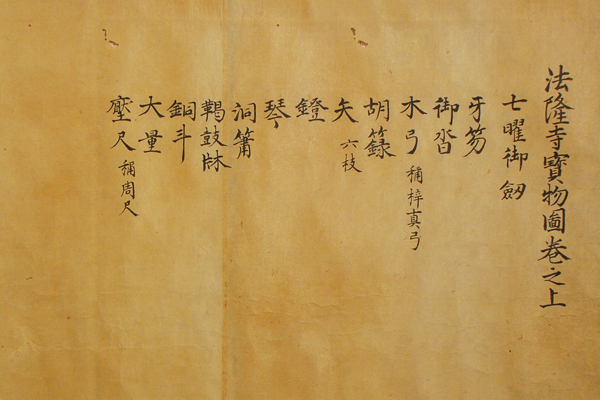 法隆寺寶物圖卷之上
七曜御劔
牙笏
御沓
木弓 稱梓真弓
胡籙
矢 六枝
鐙
琴
洞簫
鞨鼓牀
銅斗
大量
壓尺 稱周尺